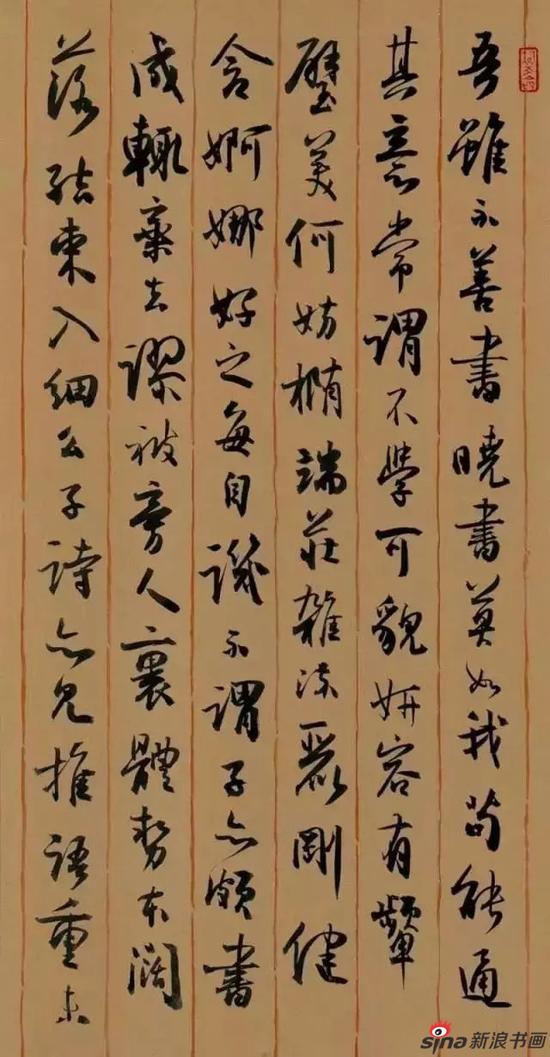 吾雖不善書曉書莫如我苟能通
其意常謂不學可貌妍容有顰
璧美何妨橢端莊雜流麗剛健
含婀娜好之每自譏不謂子亦頗書
成輒棄去謬被旁人裹體勢本闊
落結束入細么子詩亦見推語重未
sina新浪书画